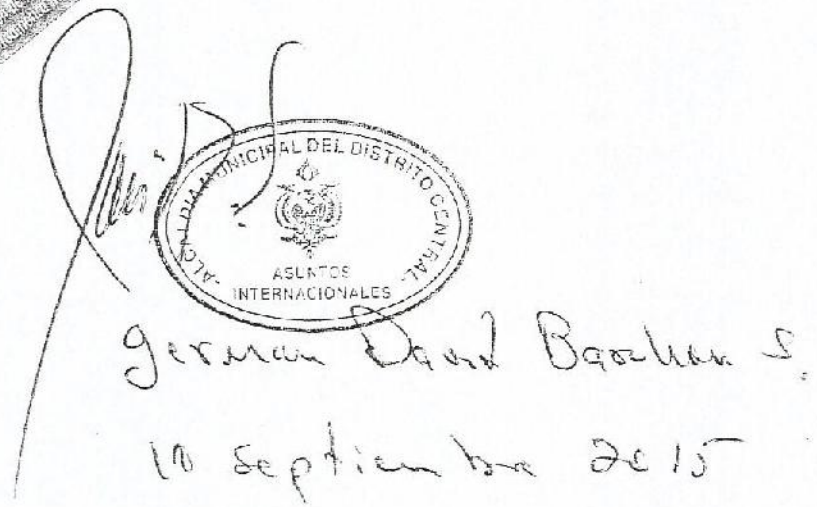 ALCALDIA MUNICIPAL DEL DISTRITO CENTRAL
ASUNTOS
INTERNACIONALES
German David S.
10 Septiembre 2015